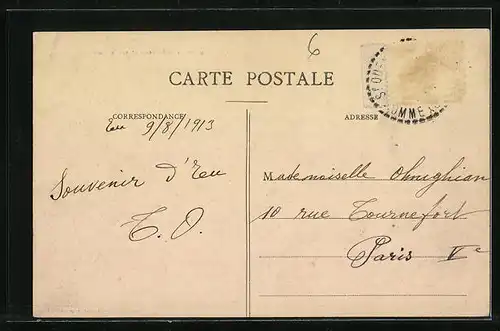 6
CARTE POSTALE
CORRESPONDANCE
ADRESSE
Eu 9/8/1913
Souvenir d'Eu
T. O.
Mademoiselle Ohnighian
10 rue Tournefort
Paris Ve